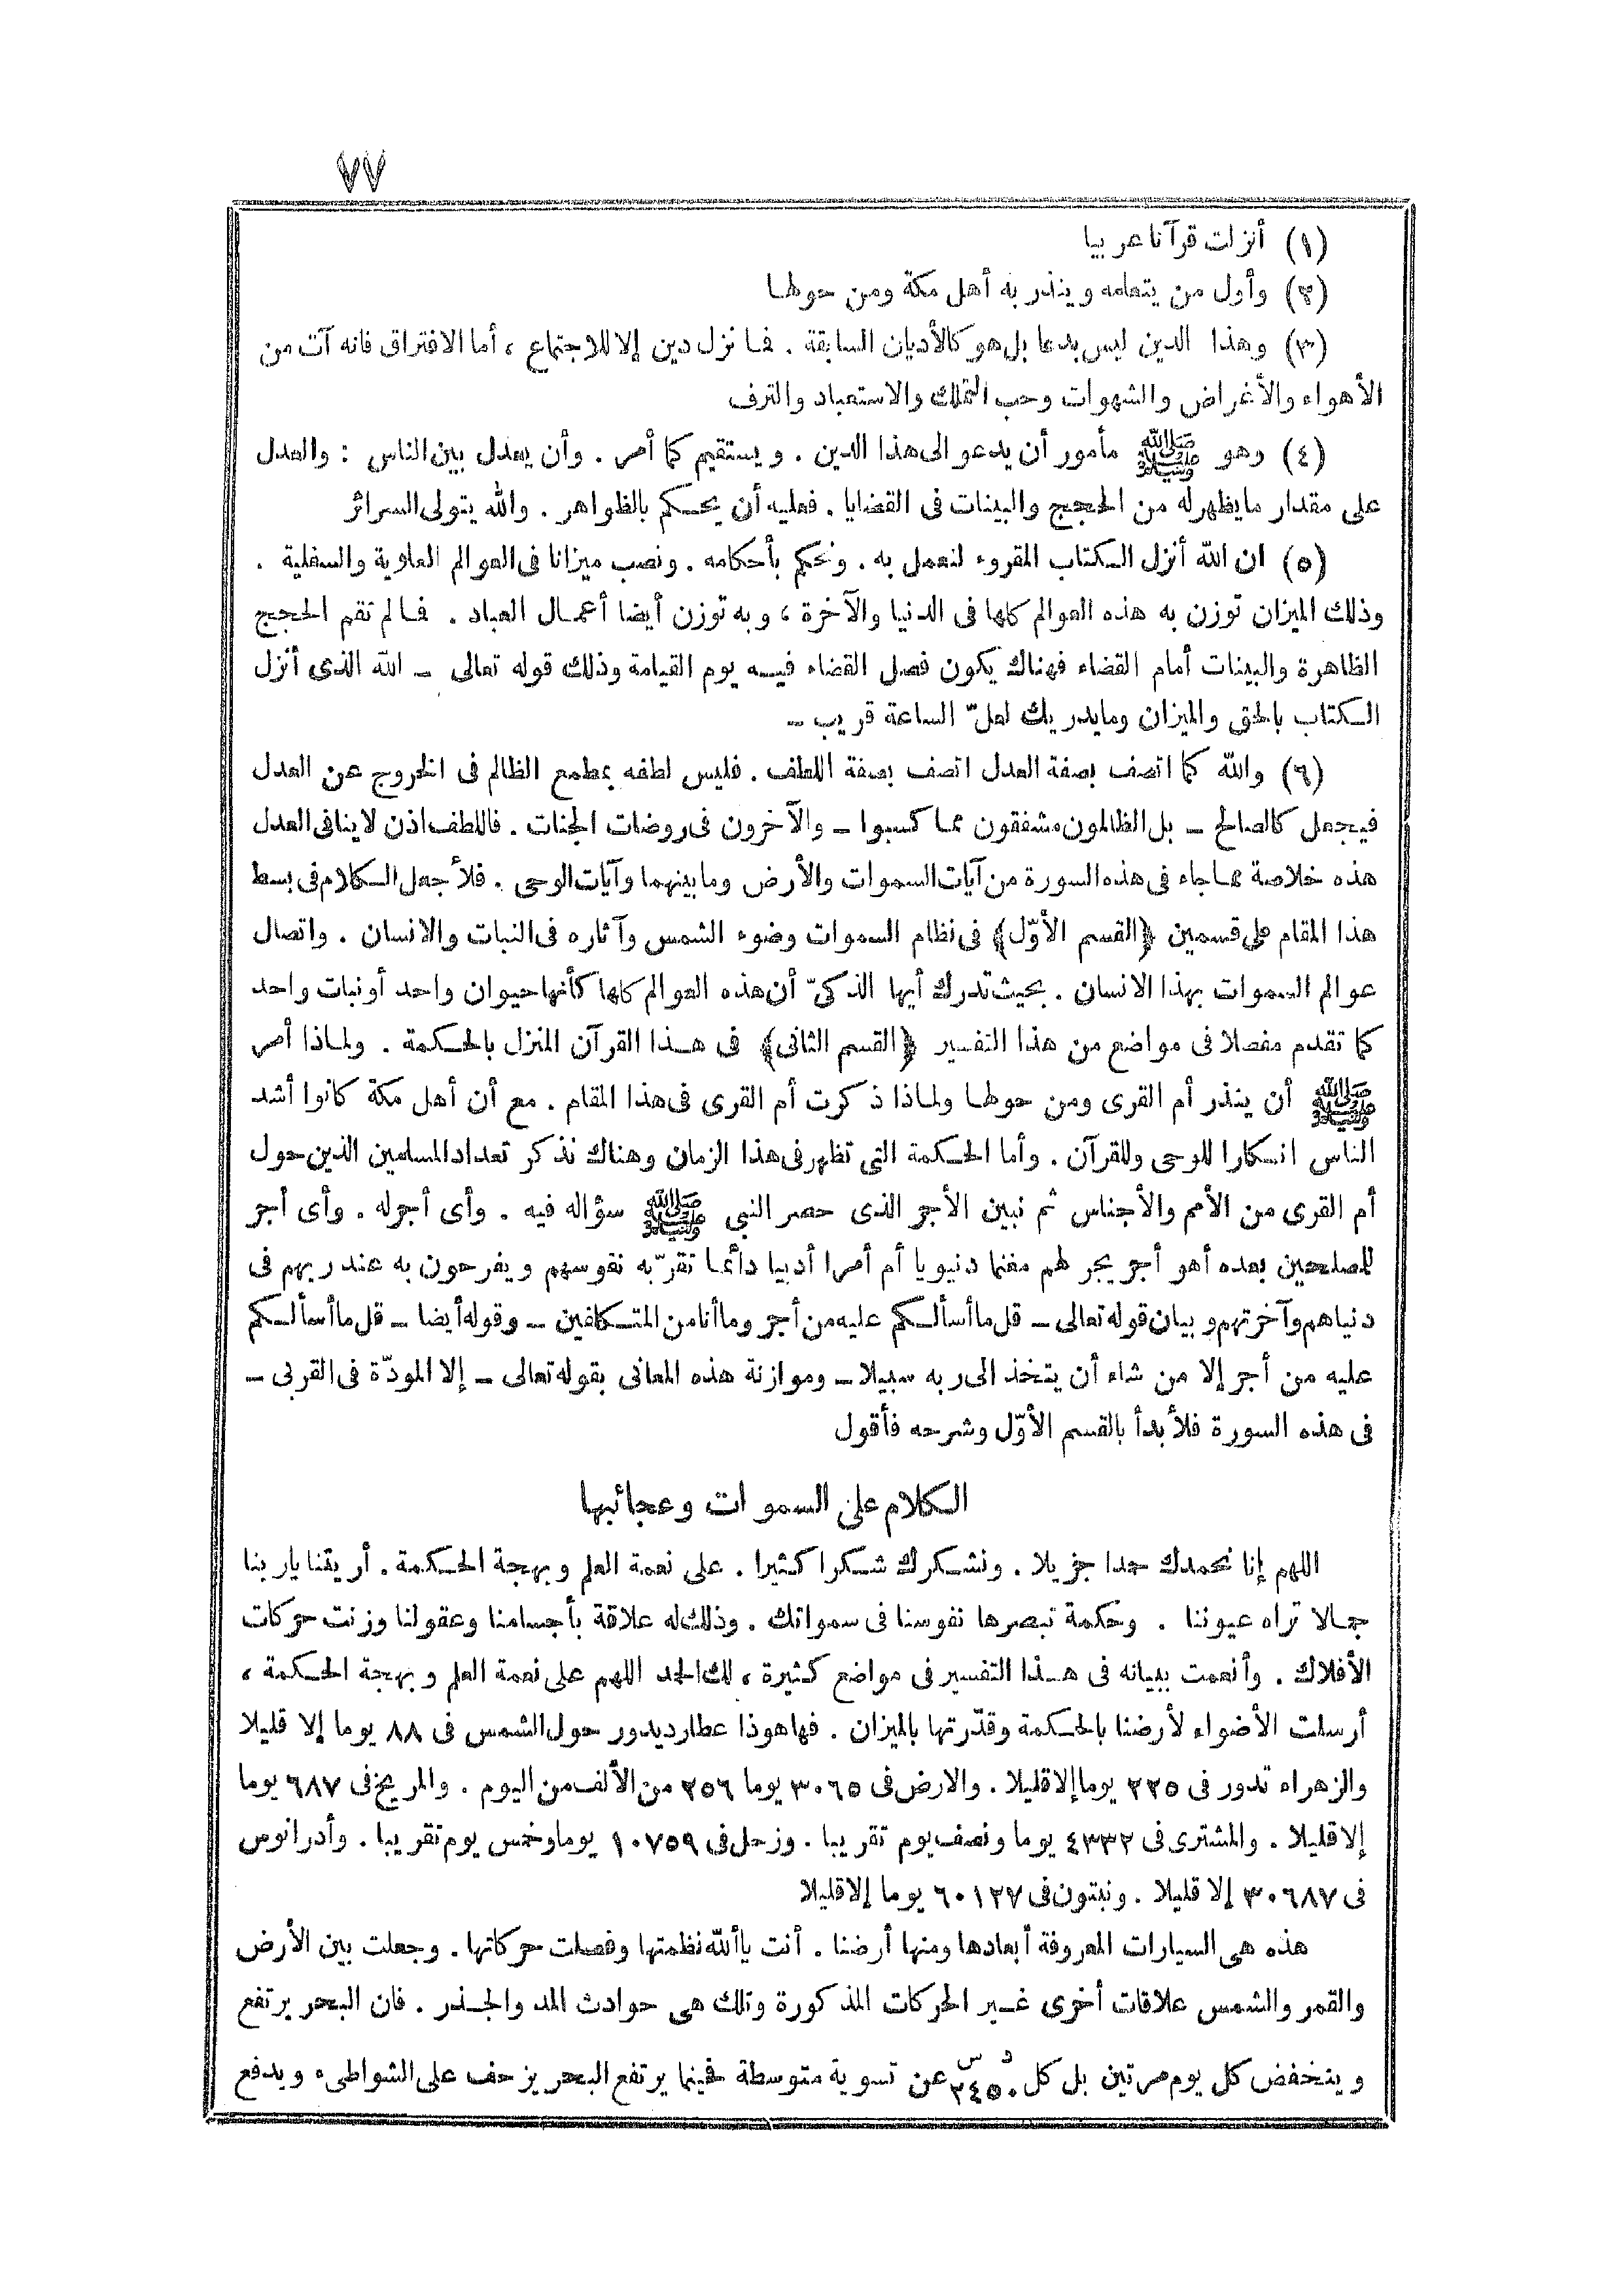 ٧٧
(١) أنزلت قرآنا عربيا
(٢) وأول من يتعلمه وينذر به أهل مكة ومن حولها
(٣) وهذا الدين ليس بدعا بل هو كالأديان السابقة . فما نزل دين إلا للاجتماع ، أما الافتراق فانه آت من
الأهواء والأغراض والشهوات وحب التملك والاستعباد والترف
(٤) وهو ﷺ مأمور أن يدعو الى هذا الدين . ويستقيم كما أمر . وأن يعدل بين الناس : والعدل
على مقدار ما يظهر له من الحجج والبينات فى القضايا . فعليه أن يحكم بالظواهر . والله يتولى السرائر
(٥) ان الله أنزل الكتاب المقروء لنعمل به . ونحكم بأحكامه . ونصب ميزانا فى العوالم العلوية والسفلية .
وذلك الميزان توزن به هذه العوالم كلها فى الدنيا والآخرة ، وبه توزن أيضا أعمال العباد . فما لم تقم الحجج
الظاهرة والبينات أمام القضاء فهناك يكون فصل القضاء فيه يوم القيامة وذلك قوله تعالى ـ الله الذى أنزل
الكتاب بالحق والميزان وما يدريك لعلّ الساعة قريب ـ
(٦) والله كما اتصف بصفة العدل اتصف بصفة اللطف . فليس لطفه يطمع الظالم فى الخروج عن العدل
فيجعل كالصالح ـ بل الظالمون مشفقون مما كسبوا ـ والآخرون فى روضات الجنات . فاللطف اذن لا ينافى العدل
هذه خلاصة مما جاء فى هذه السورة من آيات السموات والأرض وما بينهما وآيات الوحى . فلأجعل الكلام فى بسط
هذا المقام على قسمين ﴿القسم الأوّل﴾ فى نظام السموات وضوء الشمس وآثاره فى النبات والانسان . واتصال
عوالم السموات بهذا الانسان . بحيث تدرك أيها الذكىّ أن هذه العوالم كلها كأنها حيوان واحد أو نبات واحد
كما تقدم مفصلا فى مواضع من هذا التفسير ﴿القسم الثانى﴾ فى هذا القرآن المنزل بالحكمة . ولماذا أمر
ﷺ أن ينذر أم القرى ومن حولها ولماذا ذكرت أم القرى فى هذا المقام . مع أن أهل مكة كانوا أشد
الناس انكارا للوحى وللقرآن . وأما الحكمة التى تظهر فى هذا الزمان وهناك نذكر تعداد المسلمين الذين حول
أم القرى من الأمم والأجناس ثم نبين الأجر الذى حصر النبى ﷺ سؤاله فيه . وأى أجر له . وأى أجر
للمصلحين بعده أهو أجر يجر لهم مغنما دنيويا أم أمرا أدبيا دائما تقرّ به نفوسهم ويفرحون به عند ربهم فى
دنياهم وآخرتهم وبيان قوله تعالى ـ قل ما أسألكم عليه من أجر وما أنا من المتكلفين ـ وقوله أيضا ـ قل ما أسألكم
عليه من أجر إلا من شاء أن يتخذ الى ربه سبيلا ـ وموازنة هذه المعانى بقوله تعالى ـ إلا المودّة فى القربى ـ
فى هذه السورة فلأبدأ بالقسم الأوّل وشرحه فأقول
الكلام على السموات وعجائبها
اللهم إنا نحمدك حمدا جزيلا . ونشكرك شكرا كثيرا . على نعمة العلم وبهجة الحكمة . أريتنا يا ربنا
جمالا تراه عيوننا . وحكمة تبصرها نفوسنا فى سمواتك . وذلك له علاقة بأجسامنا وعقولنا وزنت حركات
الأفلاك . وأنعمت ببيانه فى هذا التفسير فى مواضع كثيرة ، لك الحمد اللهم على نعمة العلم وبهجة الحكمة ،
أرسلت الأضواء لأرضنا بالحكمة وقدّرتها بالميزان . فها هوذا عطارد يدور حول الشمس فى ٨٨ يوما إلا قليلا
والزهراء تدور فى ٢٢٥ يوما إلا قليلا . والارض فى ٣٠٦٥ يوما ٢٥٦ من الألف من اليوم . والمريخ فى ٦٨٧ يوما
إلا قليلا . والمشترى فى ٤٣٣٢ يوما ونصف يوم تقريبا . وزحل فى ١٠٧٥٩ يوما وخمس يوم تقريبا . وأدرانوس
فى ٣٠٦٨٧ إلا قليلا . ونبتون فى ٦٠١٢٧ يوما إلا قليلا
هذه هى السيارات المعروفة أبعادها ومنها أرضنا . أنت يا ألله نظمتها وفصلت حركاتها . وجعلت بين الأرض
والقمر والشمس علاقات أخرى غير الحركات المذكورة وتلك هى حوادث المد والجذر . فان البحر يرتفع
وينخفض كل يوم مرتين بل كل عن تسوية متوسطة فحينما يرتفع البحر يزحف على الشواطىء ويدفع